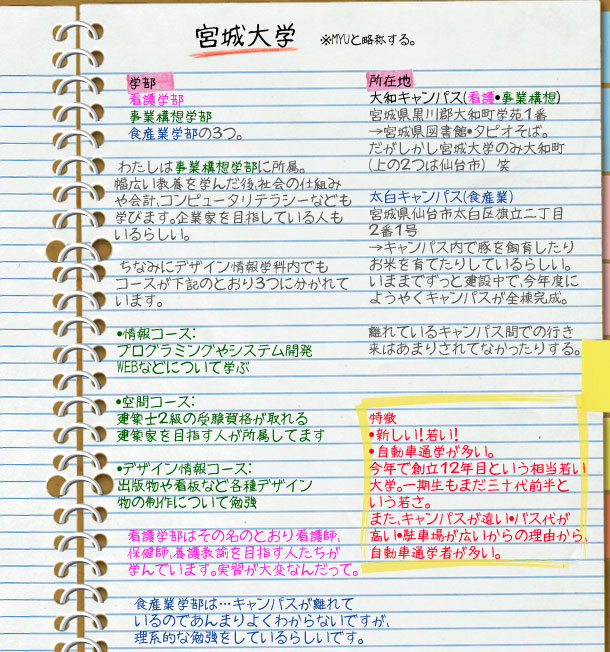 宮城大学 ※MYUと略称する。
学部
看護学部
事業構想学部
食産業学部の3つ。
わたしは事業構想学部に所属。
幅広い教養を学んだ後、社会の仕組み
や会計、コンピュータリテラシーなども
学びます。企業家を目指している人も
いるらしい。
ちなみにデザイン情報学科内でも
コースが下記のとおり3つに分かれて
います。
•情報コース:
プログラミングやシステム開発
WEBなどについて学ぶ
•空間コース:
建築士2級の受験資格が取れる
建築家を目指す人が所属してます
•デザイン情報コース:
出版物や看板など各種デザイン
物の制作について勉強
看護学部はその名のとおり看護師、
保健師、養護教諭を目指す人たちが
学んでいます。実習が大変なんだって。
食産業学部は…キャンパスが離れて
いるのであんまりよくわからないですが、
理系的な勉強をしているらしいです。
所在地
大和キャンパス(看護•事業構想)
宮城県黒川郡大和町学苑1番
→宮城県図書館•タピオそば。
だがしかし宮城大学のみ大和町
(上の2つは仙台市) 笑
太白キャンパス(食産業)
宮城県仙台市太白区旗立二丁目
2番1号
→キャンパス内で豚を飼育したり
お米を育てたりしているらしい。
いままでずっと建設中で、今年度に
ようやくキャンパスが全棟完成。
離れているキャンパス間での行き
来はあまりされてなかったりする。
特徴
•新しい!若い!
•自動車通学が多い。
今年で創立12年目という相当若い
大学。一期生もまだ三十代前半と
いう若さ。
また、キャンパスが遠い•バス代が
高い•駐車場が広いからの理由から、
自動車通学者が多い。